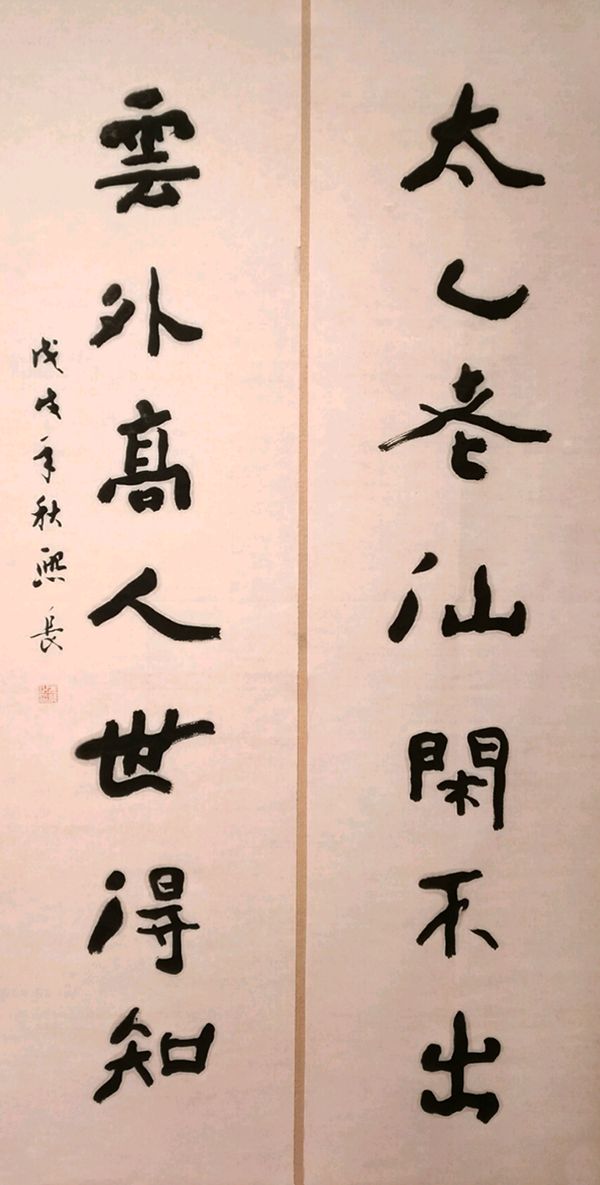 太乙老仙閑不出
雲外高人世得知
戊戌年秋熙長